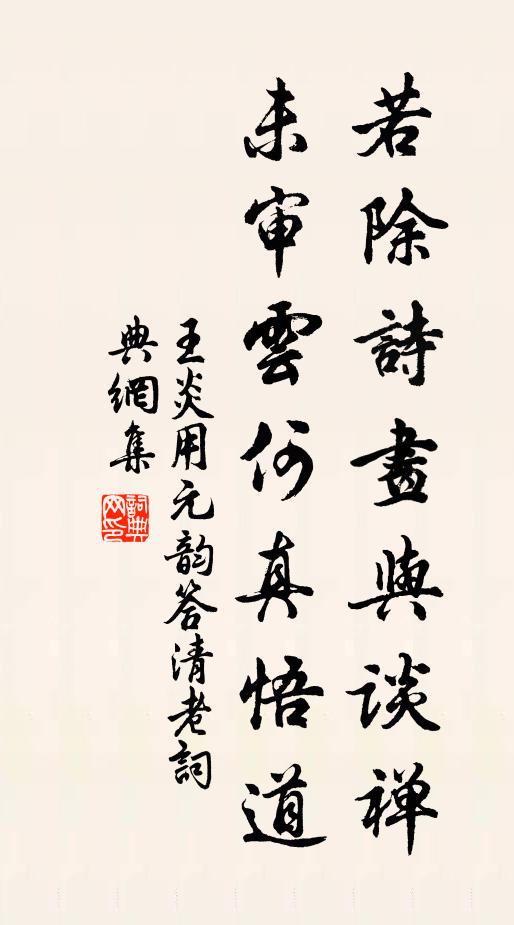 若除詩畫與談禅
未审雲何真悟道
王炎用元韵答清老詞
典網集
詞典
网印